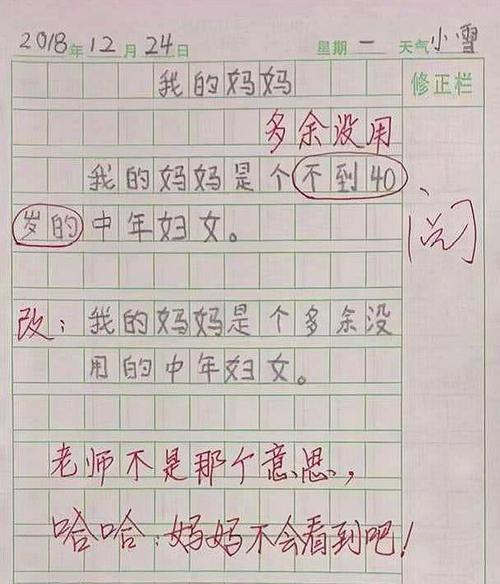 2018年12月24日 星期一 天气小雪
我的妈妈 修正栏
多余没用
我的妈妈是个不到40
岁的中年妇女。 阅
改：我的妈妈是个多余没
用的中年妇女。
老师不是那个意思，
哈哈：妈妈不会看到吧！